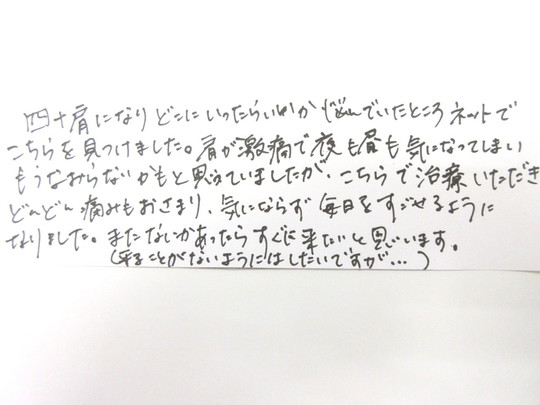 四十肩になりどこにいったらいいか なやんでいたところ ネットで
こちらを見つけました。肩が激痛で夜も昼も気になってしまい
もうなおらないかもと思っていましたが、こちらで治療いただき
どんどん痛みもおさまり、気にならず毎日をすごせるように
なりました。またなにかあったらすぐに来たいと思います。
(来ることがないようにはしたいですが…)